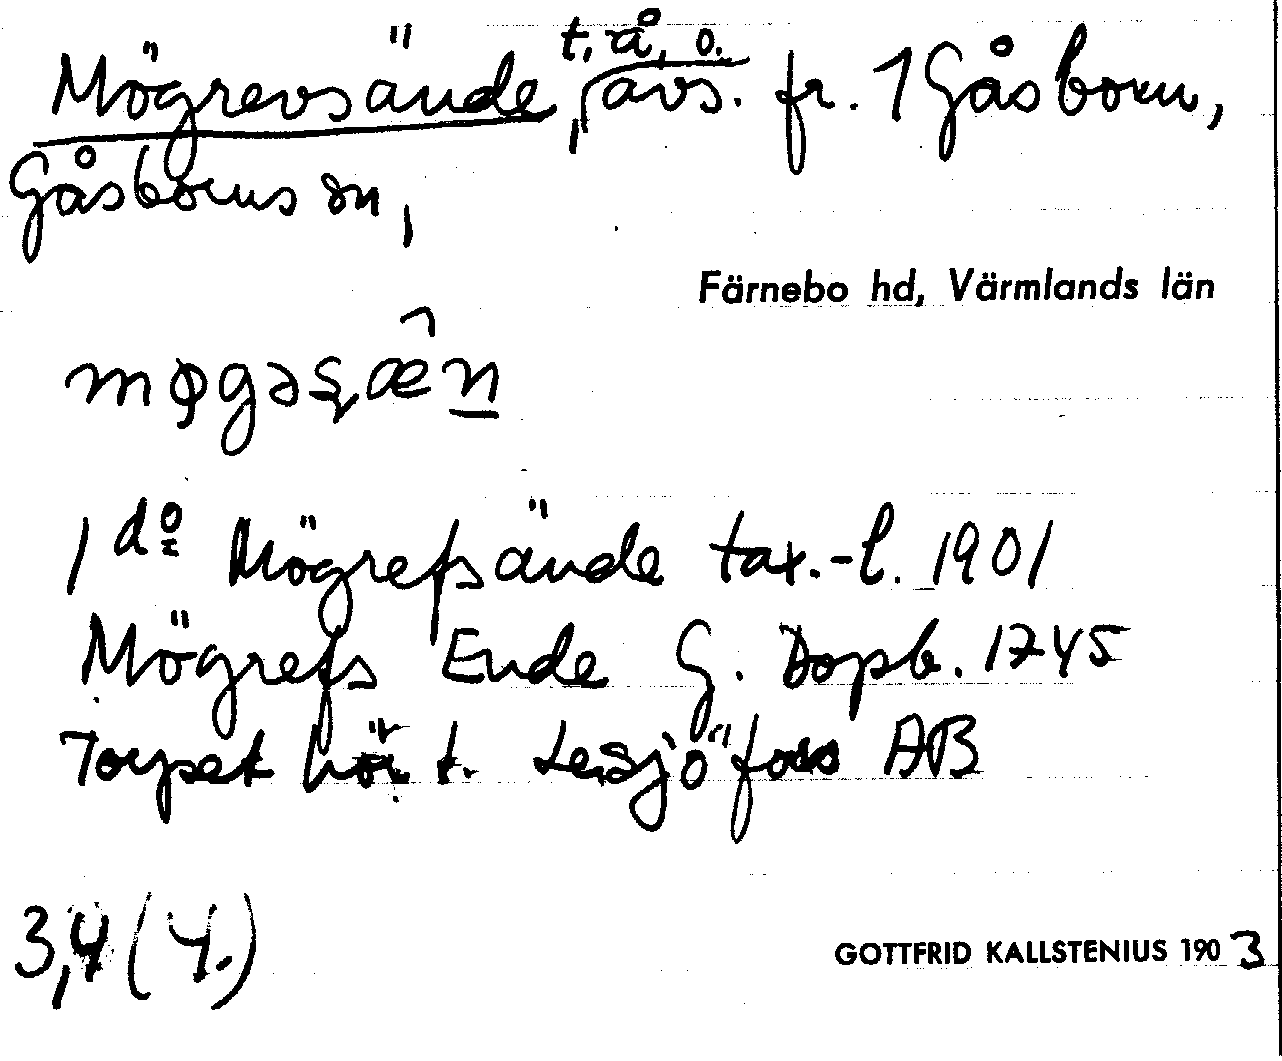 Mögrevsände, t, å, o. avs. fr. 1 Gåsborn,
Gåsborns sn,
Färnebo hd, Värmlands län
1 do Mögrefsände tax.-l. 1901
Mögrefs Ende G. Dopb. 1745
Torpet hör t. Lesjöfors AB
3,4 (4.)
GOTTFRID KALLSTENIUS 1903